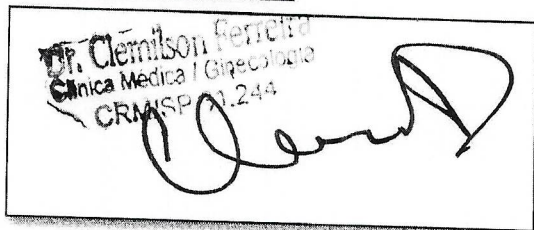 Dr. Clemilson Ferreira
Clínica Médica / Ginecologia
CRM/SP .244